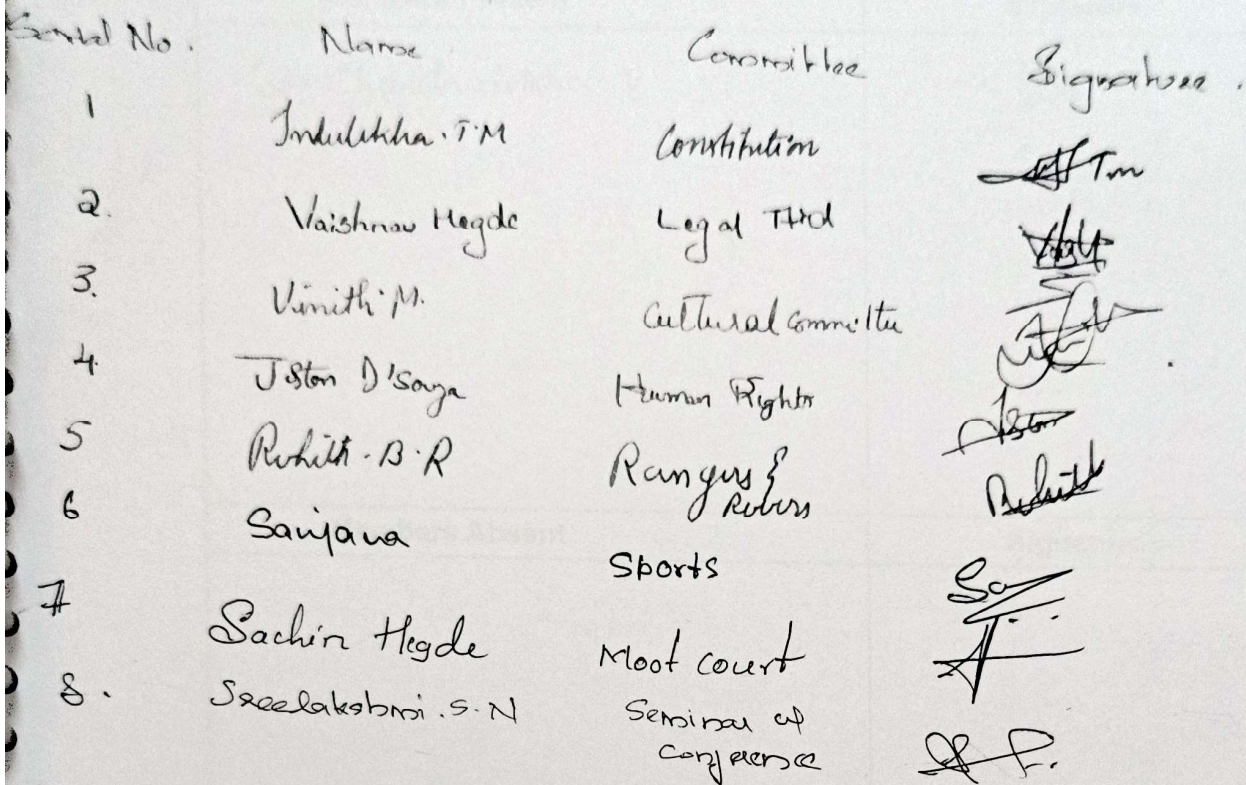 Serial No. Name Committee Signature.
1 Indulekha.T.M Constitution Tm
2. Vaishnav Hegde Legal Aid
3. Vinith.M. Cultural Committee
4. Jiston D'Souza Human Rights
5 Rohith.B.R Rangers &
Rovers Rohith
6 Sanjana Sports Sa
7 Sachin Hegde Moot court
8. Sreelakshmi.S.N Seminar of
Conference